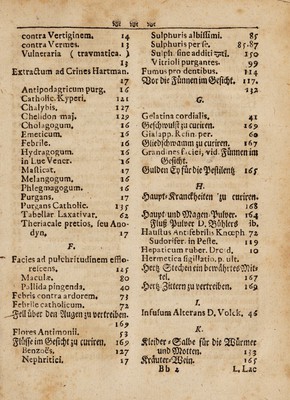 contra Vertiginem, 14
contra Vermes. 13
Vulneraria ( traumatica. )
13
Extractum ad Crines Hartman.
27
Antipodagricum purg. 16
Catholic. Kyperi, 121
Chalybis, 127
Chelidon maj. 129
Cholagogum, 16
Emeticum. 16
Febrile. 16
Hydragogum. 16
in Lue Vener. 16
Masticat. 17
Melangogum, 16
Phlegmagogum. 16
Purgans. 17
Purgans Catholic. 135
Tabellar Laxativar, 62
Theriacale pretios, seu Ano-
dyn, 17
F.
Facies ad pulchritudinem efflo-
rescens, 125
Maculæ. 80
Pollida pingenda, 40
Febris contra ardorem, 73
Febrile catholicum, 72
Fell über den Augen zu vertreiben.
169
Flores Antimonii. 53
Flüsse im Gesicht zu curiren. 169
Benzoës. 127
Nephritici. 17
Sulphuris albissimi. 85
Sulphuris per se. 85-87
Sulph. sine additione. 150
Vitrioli purgantes. 99
Fumus pro dentibus. 114
Vor die Fünnen im Gesicht. 117.
132
G.
Gelatina cordialis. 41
Geschwulst zu curiren. 169
Gialapp. Rehn per. 60
Gliedschwamm zu curiren. 167
Grandines faciei, vid. Fünnen im
Gesicht.
Gulden Ey für die Pestilentz 165
H.
Haupt-Kranckheiten zu curiren.
168
Haupt- und Magen-Pulver. 164
Fluß Pulver D. Bühlers ib.
Haustus Antifebrilis Knœph 72
Sudorifer. in Peste. 119
Hepaticum ruber. Dreid. 10
Hermetica sigillatio, p. ult.
Hertz Stechen ein bewährtes Mit-
tel. 167
Hertz Zittern zu vertreiben. 169
I.
Infusum Alterans D. Volck, 46
K.
Kleider-Salbe für die Würmer
und Motten. 133
Kräuter-Wein. 165
Bb 4 L, Lac